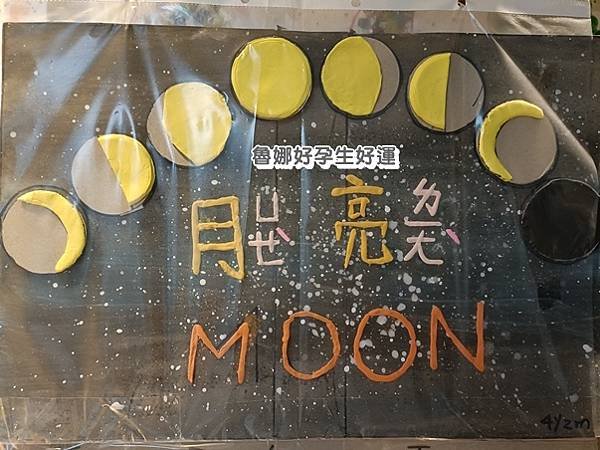 魯娜好孕生好運
月ㄩㄝˋ 亮ㄌㄧㄤˋ
MOON
4y2m